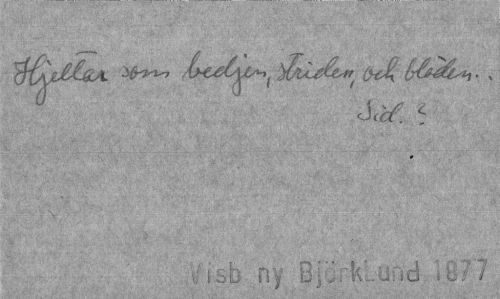 Hjeltar som bedjen, striden, och blöden..
Sid. ?
Visb ny Björklund 1877